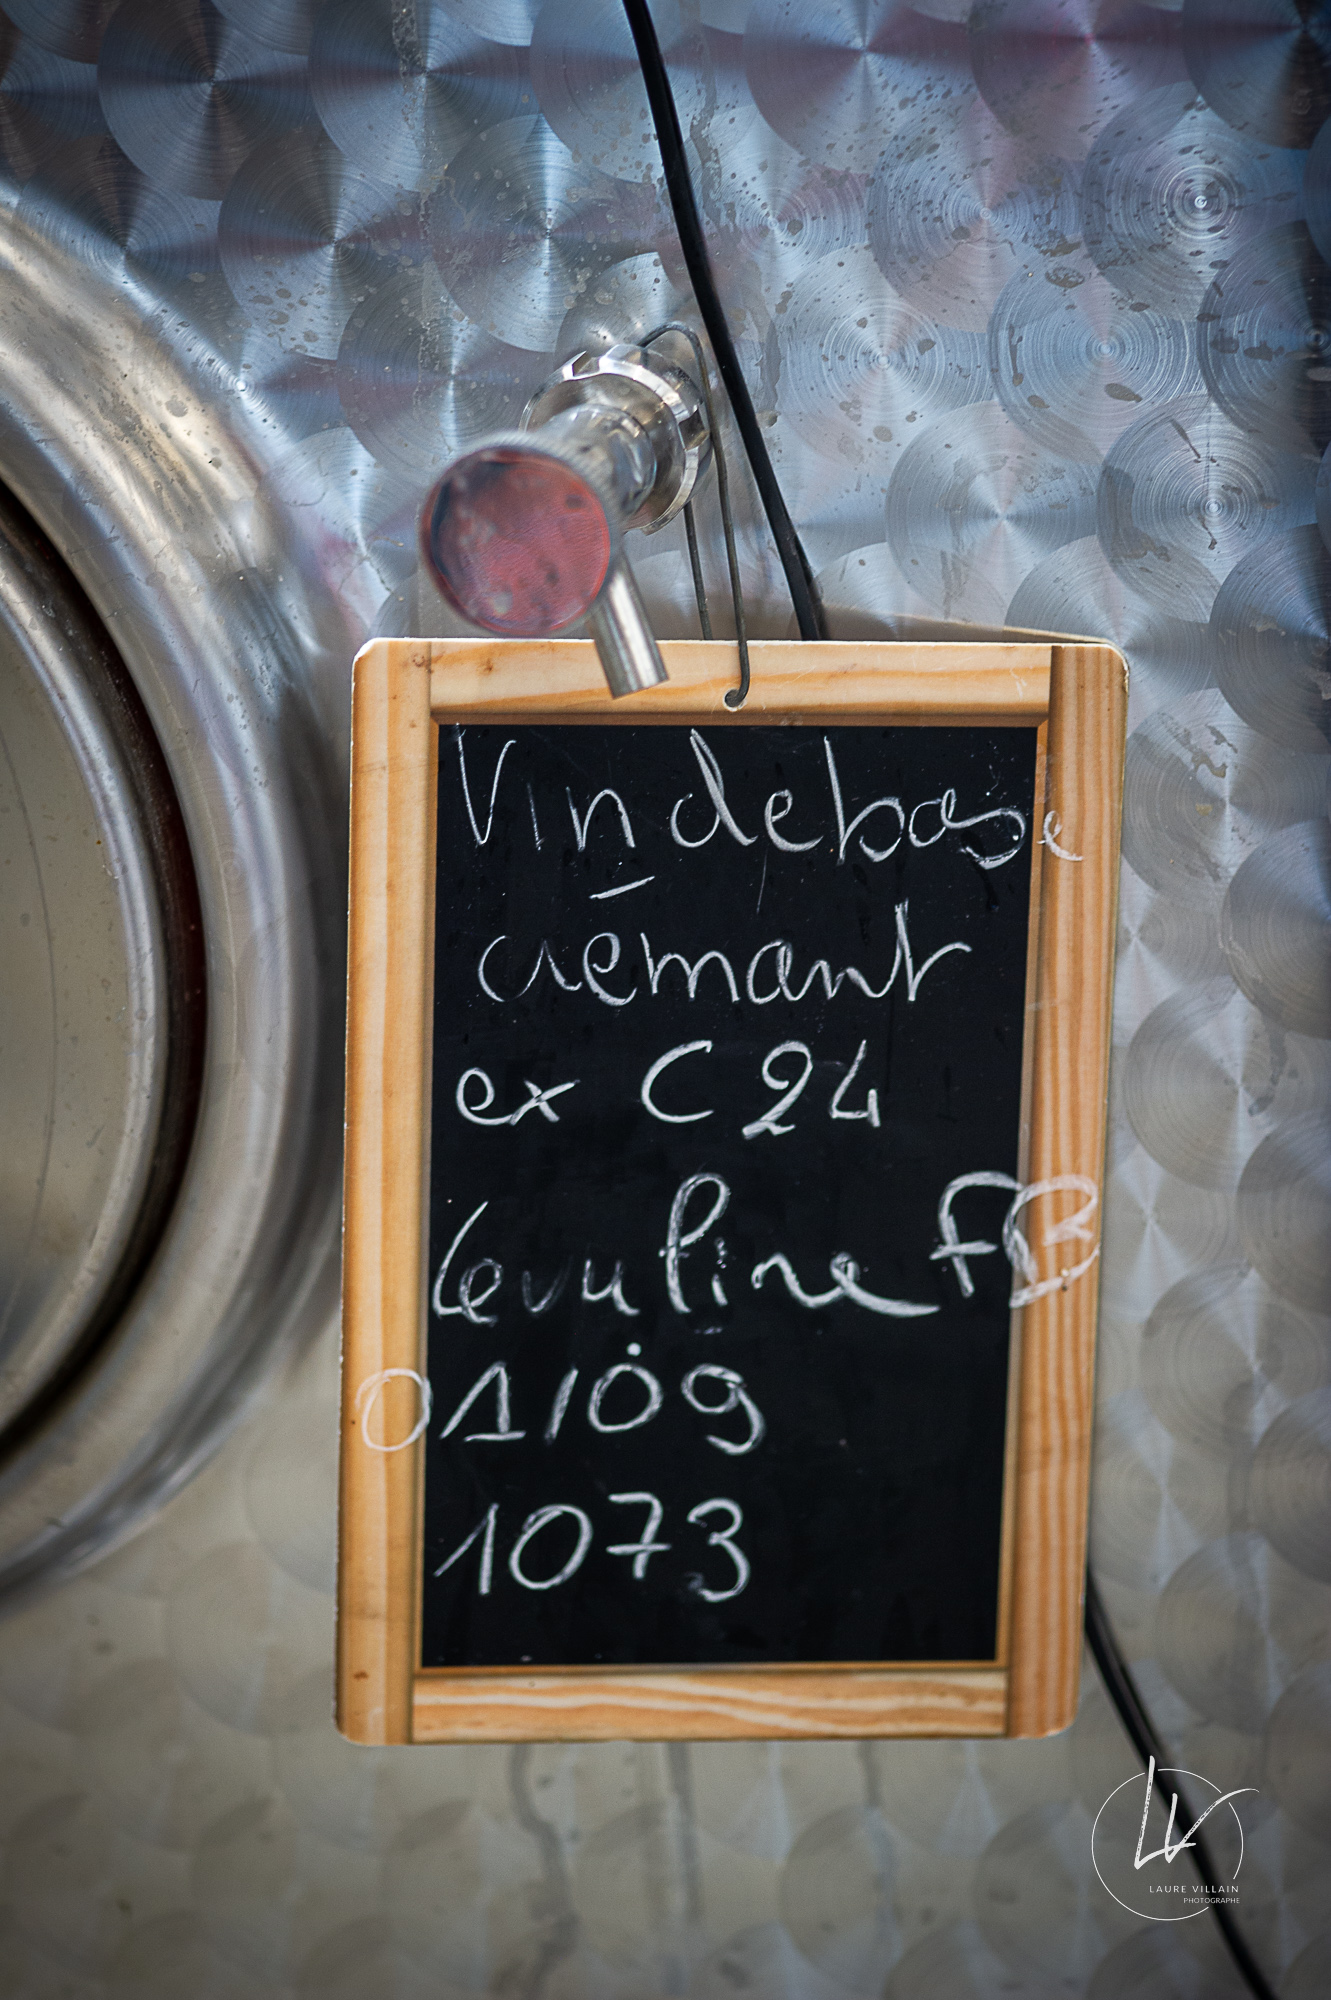 Vin de base
crémant
ex C 24
Levuline FB
01/09
1073
LV
LAURE VILLAIN
PHOTOGRAPHE